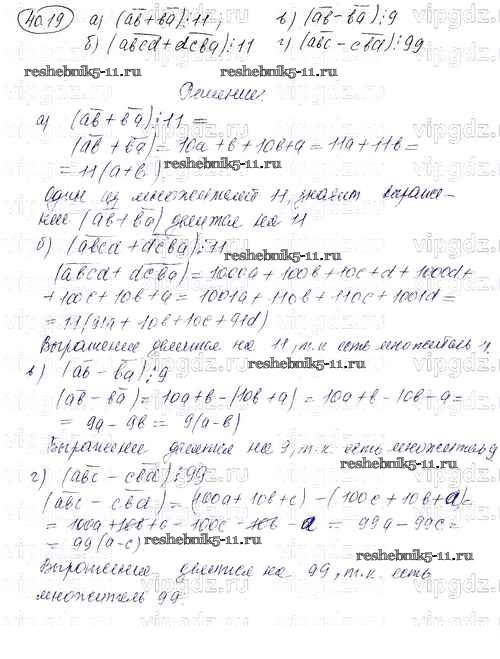 40.19 а) (ab+ba)⋮11; в) (ab-ba)⋮9
б) (abcd+dcba)⋮11 г) (abc-cba)⋮99
reshebnik5-11.ru reshebnik5-11.ru
Решение:
а) (ab+ba)⋮11 =
(ab+ba) = 10a+b+10b+a = 11a+11b =
= 11(a+b).
reshebnik5-11.ru
Один из множителей 11, значит выраже-
ние (ab+ba) делится на 11
б) (abcd+dcba)⋮11
reshebnik5-11.ru
(abcd+dcba) = 1000a+100b+10c+d+1000d+
+100c+10b+a = 1001a+110b+110c+1001d =
= 11(91a+10b+10c+91d)
Выражение делится на 11, т.к. есть множитель 11.
reshebnik5-11.ru
в) (ab-ba)⋮9
(ab-ba) = 10a+b-(10b+a) = 10a+b-10b-a=
= 9a-9b = 9(a-b)
reshebnik5-11.ru
Выражение делится на 9, т.к. есть множитель 9
г) (abc-cba)⋮99
reshebnik5-11.ru
(abc-cba) = (100a+10b+c)-(100c+10b+a)=
= 100a+10b+c-100c-10b-a = 99a-99c=
= 99(a-c)
reshebnik5-11.ru
Выражение делится на 99, т.к. есть
множитель 99.
reshebnik5-11.ru
vipgdz.ru